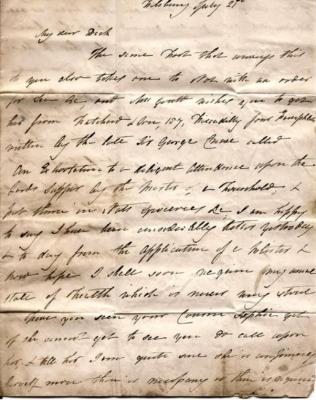 July 21st
My dear Dick
The same Post that conveys this
to you also takes one to Nat with an order
for the &c, and Nat youth wishes you to get
from Hatchard & Son 187, Piccadilly four Pamphlets
written by the late Sir George called
An Exhortation to a diligent Attendance upon the
Lords Supper by the Master of a Household, &
put them in Nats groceries &c I am happy
to say I have been considerably better yesterday
& to day from the Application of a Blister &
now hope I shall soon regain my usual
State of Health which is never very stout
Have you seen your Cousin Sophia yet
if she cannot get to see you do call upon
her & tell her I am quite sure she is confining
herself more than is necessary or than is required